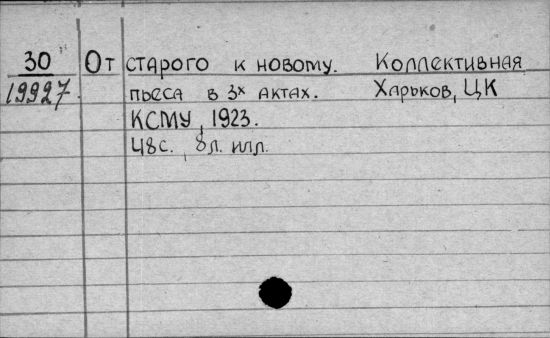 30 От старого к новому. Коллективная
19927 пьеса в 3х актах. Харьков, ЦК
КСМУ, 1923.
48с., 8л. илл.